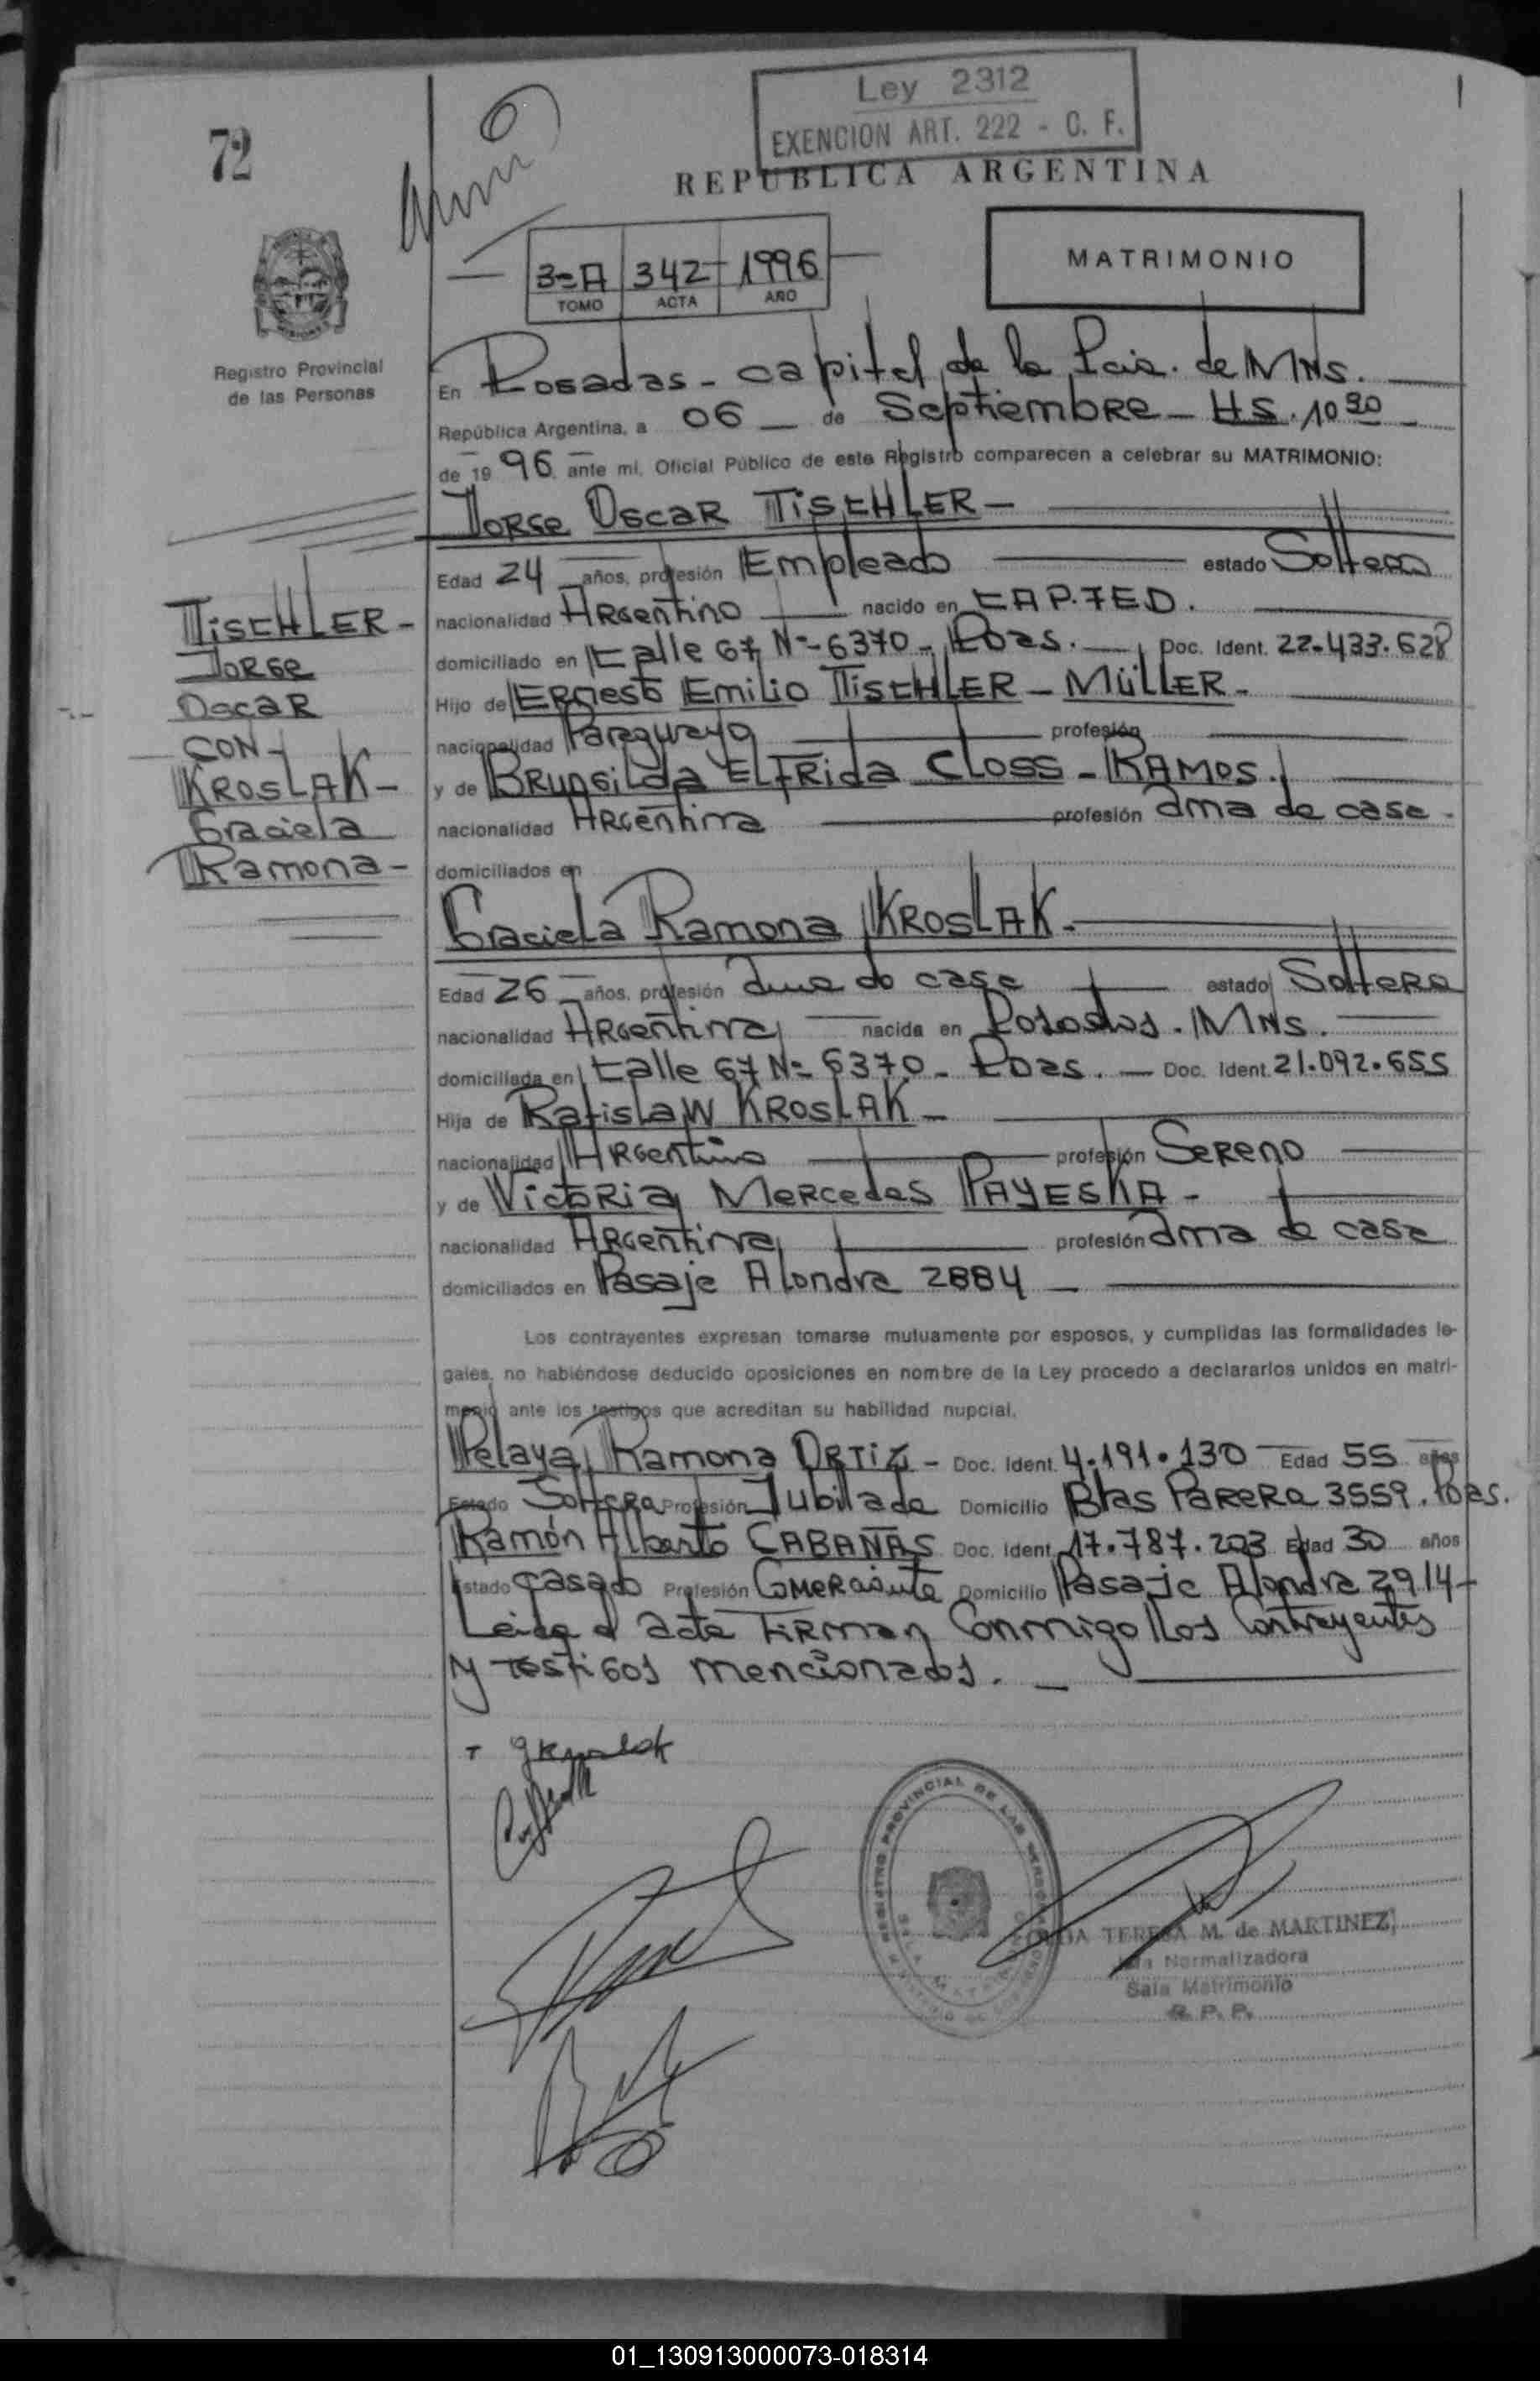 Ley 2312
EXENCION ART. 222 - C. F.
72
REPUBLICA ARGENTINA
3=A 342 1996
TOMO ACTA AÑO
MATRIMONIO
Registro Provincial
de las Personas
En Posadas - capital de la Pcia. de MNS.
República Argentina, a 06 de Septiembre - HS. 10 30
de 19 96 ante mi, Oficial Público de este Registro comparecen a celebrar su MATRIMONIO:
Jorge Oscar TISCHLER -
Edad 24 años, profesión Empleado estado Soltero
nacionalidad Argentino nacido en CAP. FED.
domiciliado en Calle 67 Nº 6370 - Pdas. - Doc. Ident. 22.433.628
Hijo de Ernesto Emilio TISCHLER - MÜLLER -
nacionalidad Paraguayo profesión
y de Brungilda ELFRida CLOSS - RAMOS.
nacionalidad Argentina profesión ama de casa -
domiciliados en
TISCHLER -
Jorge
Oscar
CON -
KROSLAK -
Graciela
Ramona -
Graciela Ramona KROSLAK -
Edad 26 años, profesión ama de casa estado Soltera
nacionalidad Argentina nacida en Posadas. MNS.
domiciliada en Calle 67 Nº 6370 - Pdas. - Doc. Ident. 21.092.655
Hija de Ratislaw KROSLAK -
nacionalidad Argentino profesión Sereno
y de Victoria Mercedes PAYESKA -
nacionalidad Argentina profesión ama de casa
domiciliados en Pasaje Alondra 2884 -
Los contrayentes expresan tomarse mutuamente por esposos, y cumplidas las formalidades le-
gales, no habiéndose deducido oposiciones en nombre de la Ley procedo a declararlos unidos en matri-
monio ante los testigos que acreditan su habilidad nupcial.
Pelaya Ramona ORTIZ - Doc. Ident. 4.191.130 Edad 55 años
Estado Soltera Profesión Jubilada Domicilio Blas Parera 3559. Pdas.
Ramón Alberto CABAÑAS Doc. Ident. 17.787.203 Edad 30 años
Estado Casado Profesión Comerciante Domicilio Pasaje Alondra 2914 -
Leida el acta Firman Conmigo los Contrayentes
y testigos mencionados. -
REGISTRO PROVINCIAL DE LAS PERSONAS
TERESA M. de MARTINEZ
Normalizadora
Sala Matrimonio
R. P. P.
01_130913000073-018314